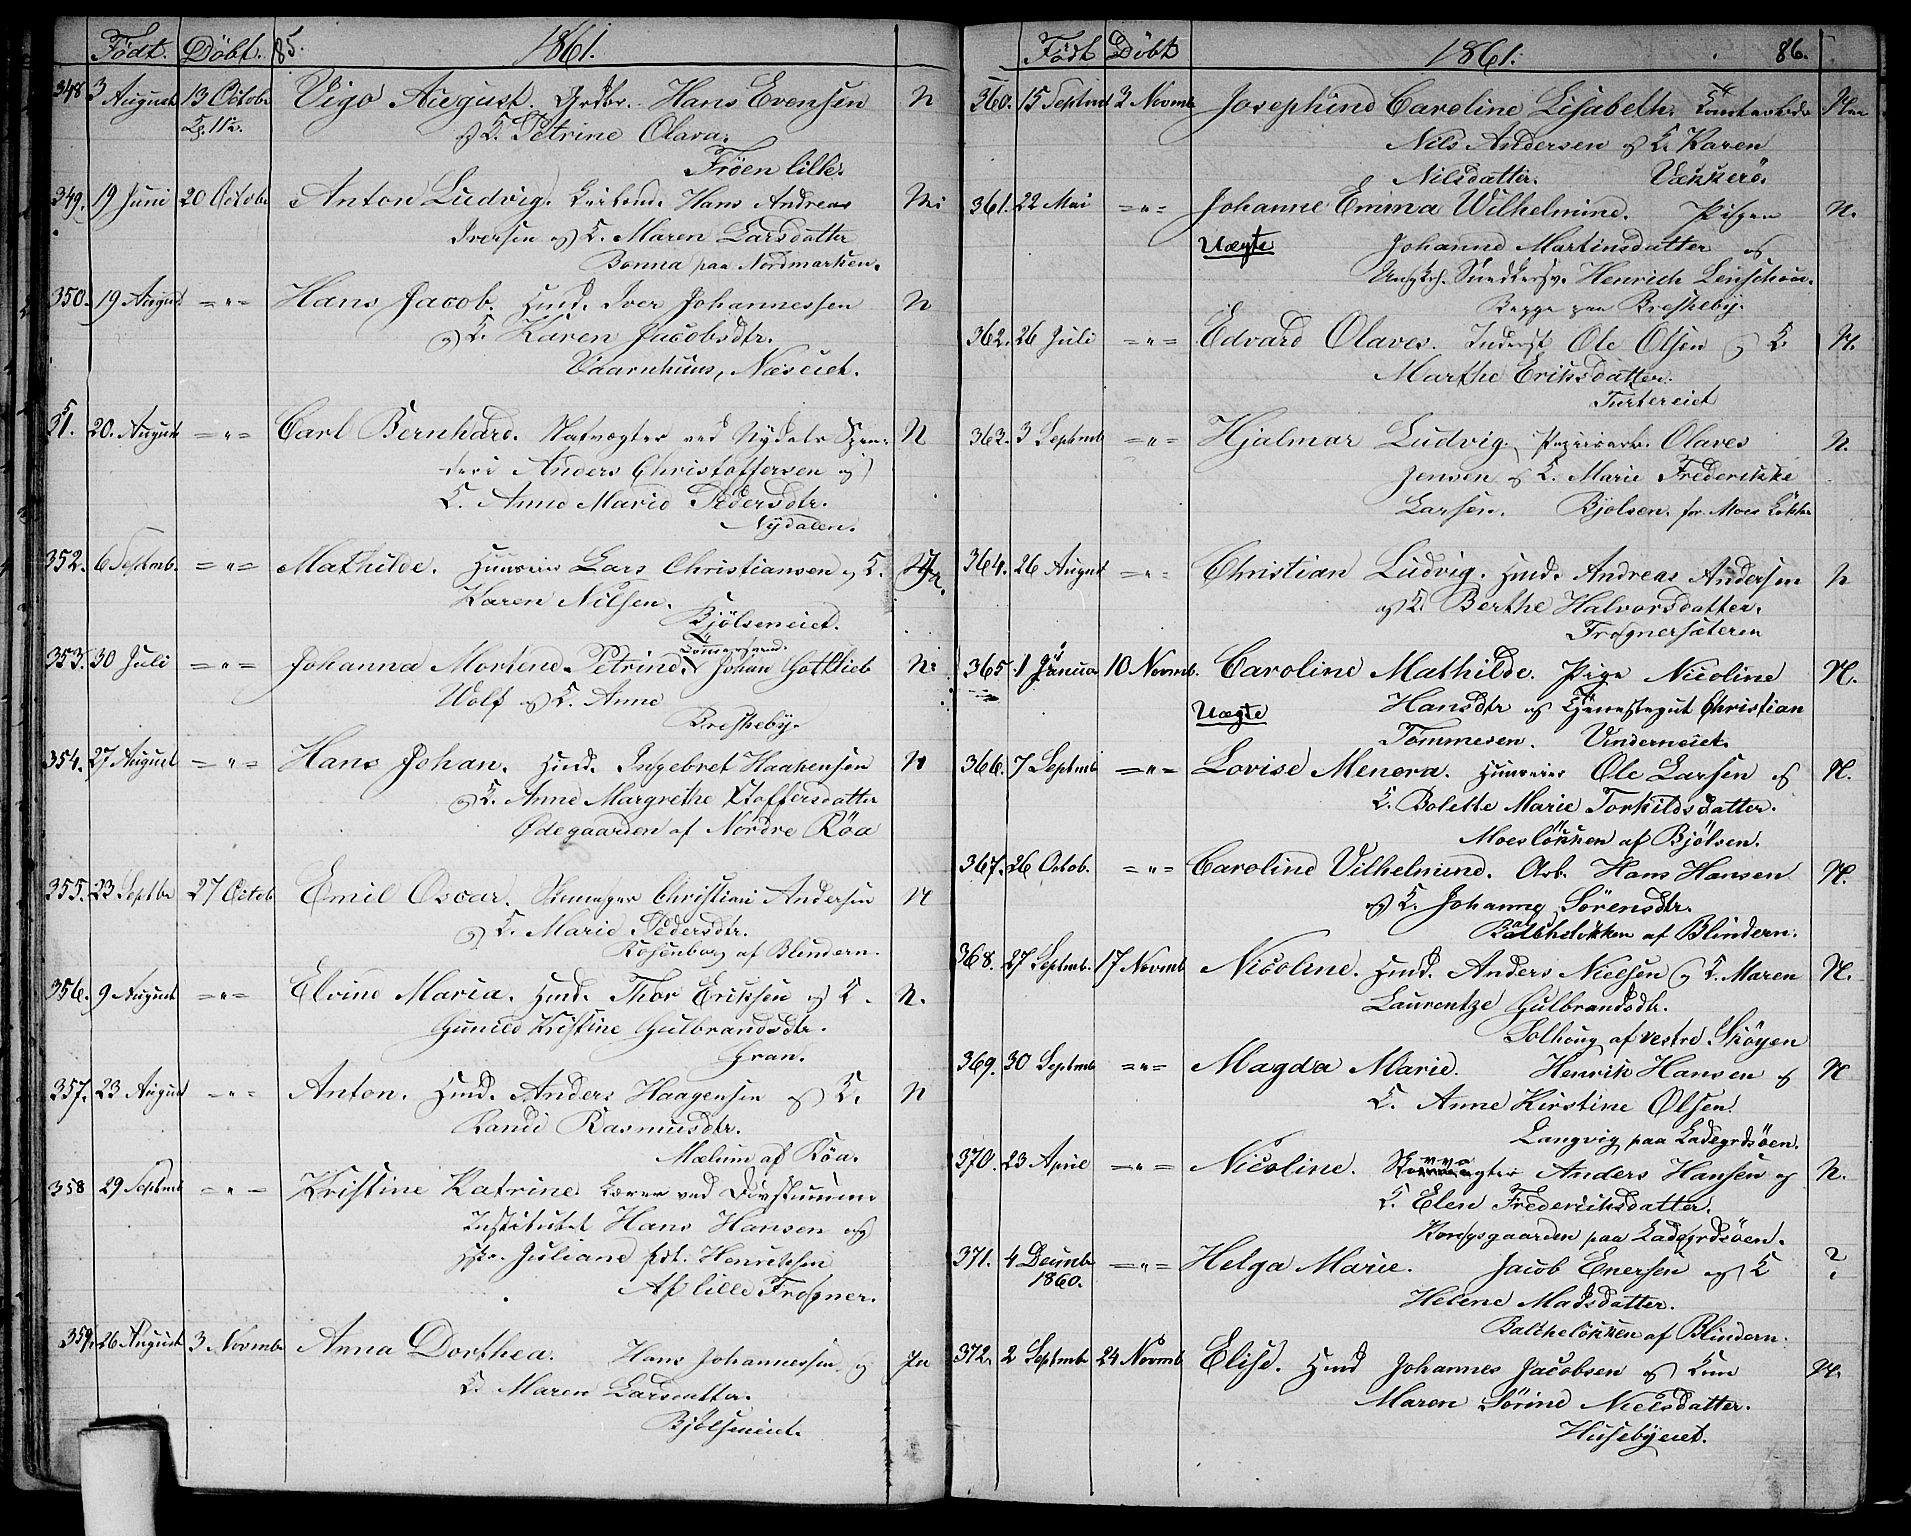 Født. Döbt. 85. 1861.
348 3 August 13 Octobr Vigo August. Grdbr. Hans Evensen N
Kp. 11½. og K. Petrine Olava.
Fröen lille.
349. 19 Juni 20 Octobr Anton Ludvig. Hans Andreas Nei
Iversen og K. Maren Larsdatter
Bonna paa Nordmarken.
350. 19 August = " = Hans Jacob. Husmd. Iver Johannessen N
og K. Karen Jacobsdtr.
Vaarnhuus, Næseiet.
351. 20. August = " = Carl Bernhard. Natvægter ved Nydals Spin- N
deri Anders Christoffersen og
K. Anne Marie Pedersdtr.
Nydalen.
352. 6 Septmb. = " = Mathilde. Huuseier Lars Christiansen og K. Ja.
Karen Nilsen.
Bjölseneiet.
353. 30 Juli = " = Johanna Mortene Petrine. Tömmersvend. Johan Gottlieb Nei
Wolf og K. Anne
Breskeby.
354. 27 August = " = Hans Johan. Husmd. Ingebret Haakensen N
og K. Anne Margrethe Stoffersdatter
Ødegaarden af Nordre Röa
355. 23 Septbr 27 Octob Emil Oscar. Stenhugger Christian Andersen N
og K. Marie Pedersdtr.
Rosenborg af Blindern.
356. 9 August = " = Elvine Maria. Husmd. Thor Eriksen og K. N.
Gunild Kristine Gulbrandsdtr.
Gran.
357. 23 August = " = Anton. Husmd. Anders Haagensen og K. N
Randi Rasmusdtr.
Mælum af Röa.
358 29 Septmb = " = Kristine Katrine. Lærer ved Døvstumme
Institutet Hans Hansen og
Hstr. Juliane fdt. Henriksen
Af lille Frogner.
359. 26 August 3 Novmb Anna Dorthea. Hans Johannessen og Ja
K. Maren Larsdatter.
Bjölseneiet.
Født Döbt 1861. 86.
360. 15 Septmb 3 Novmb Josephine Caroline Lisabeth. Tomtearbdr Nei
Nils Andersen og K. Karen
Nilsdatter. Vækkerö.
361. 22 Mai = " = Johanne Emma Wilhelmine. Pigen N.
Uægte Johanne Martinsdatter og
Ungk. Snedkersv. Henrich
Bagge paa Breskeby.
362. 26 Juli = " = Edvard Olaves. Inderst Ole Olsen og K. N.
Marthe Eriksdatter.
Turtereiet
363. 3 Septmb = " = Hjalmar Ludvig. Papirarb. Olaves N.
Jensen og K. Marie Frederikke
Larsen. Bjölsen. for Moes Lökke
364. 26 August = " = Christian Ludvig. Husmd. Andreas Andersen N
og K. Berthe Halvorsdatter.
Frognersæteren
365 1 Januar 10 Novmb. Caroline Mathilde. Pige Nicoline N.
Uægte Hansdtr og Tjenestegut Christian
Tommesen. Vinderneiet.
366. 7 Septmb = " = Lovise Menora. Huuseier Ole Larsen og N.
K. Bolette Marie Torkildsdatter.
Moeslökken af Bjölsen.
367. 26 Octob. = " = Caroline Vilhelmine. Arb. Hans Hansen N.
og K. Johanne Sörensdtr.
Balchelökken af Blindern.
368. 27 Septmb. 17 Novmb Nicoline. Husmd. Anders Nielsen og K. Maren N.
Laurentze Gulbrandsdtr.
Solhoug af vestre Sköyen
369. 30 Septmb = " = Magda Marie. Henrik Hansen og N
K. Anne Kirstine Olsen.
Langvig paa Ladegrdsöen.
370. 23 April = " = Nicoline. Skovvogter Anders Hansen og N.
K. Elen Frederiksdatter.
Kongsgaarden paa Ladegrdsöen.
371. 4 Decmb 1860. = " = Helga Marie. Jacob Enersen og K ?
Helene Madsdatter.
Balchelökken af Blindern.
372. 2 Septmb 24 Novmb Elise. Husmd Johannes Jacobsen og Kone N.
Maren Sörine Nielsdatter.
Husebyeiet.